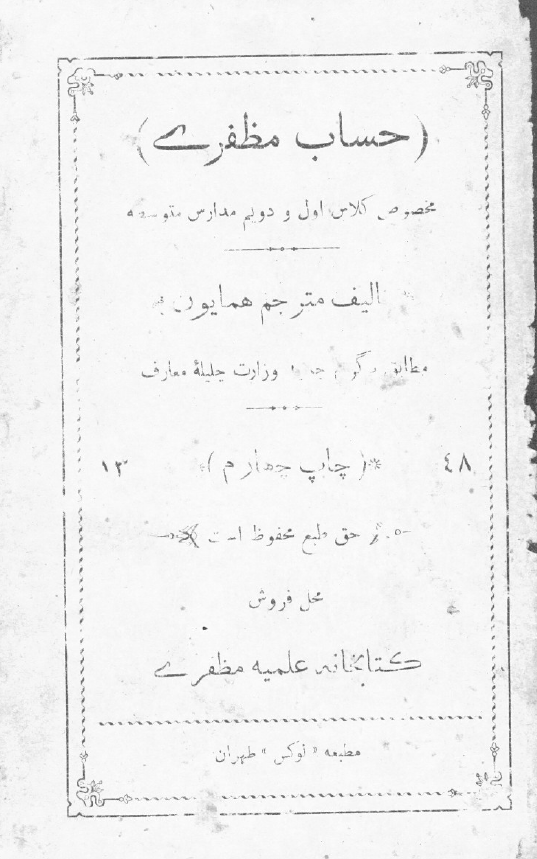 (حساب مظفرے)
مخصوص کلاس اول و دویم مدارس متوسطه
تالیف مترجم همایون
مطابق پروگرام جدید وزارت جلیلهٔ معارف
١٣ (چاپ چهارم) ٤٨
حق طبع محفوظ است
محل فروش
کتابخانه علمیه مظفرے
مطبعه « لوکس » طهران